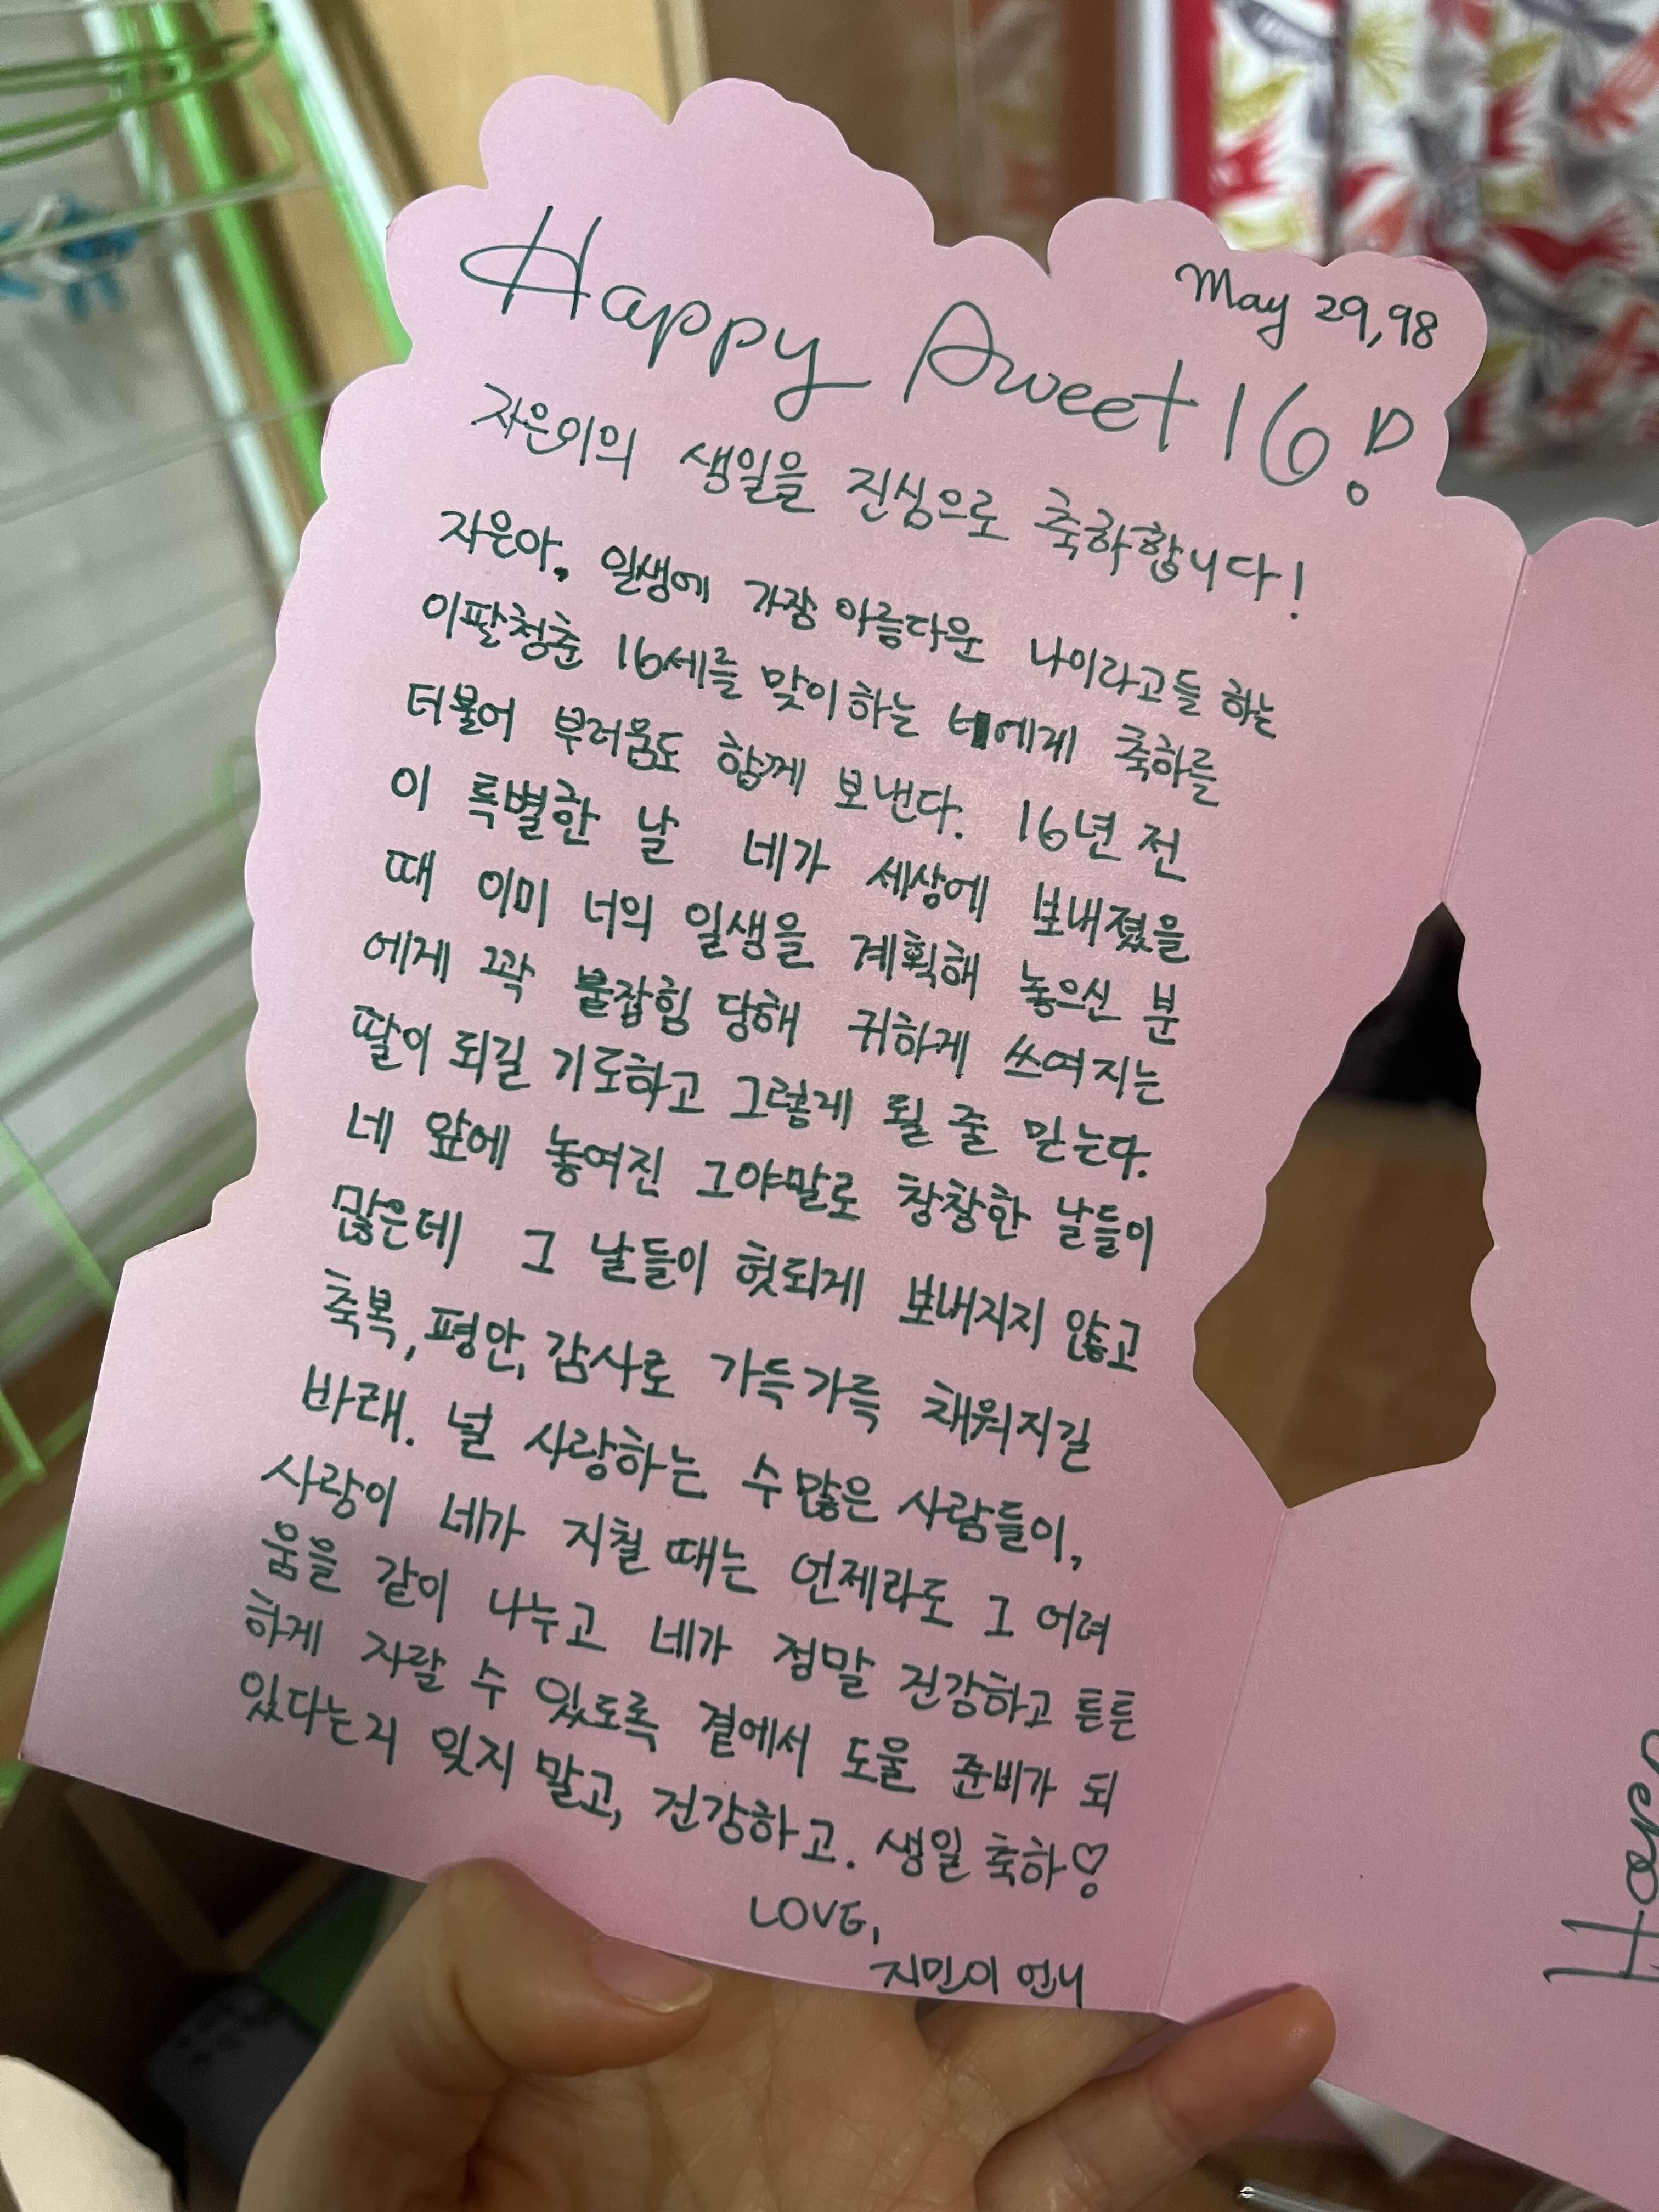 May 29, 98
Happy Sweet 16!
자은이의 생일을 진심으로 축하합니다!
자은아, 일생에 가장 아름다운 나이라고들 하는
이팔청춘 16세를 맞이하는 너에게 축하를
더불어 부러움도 함께 보낸다. 16년 전
이 특별한 날 네가 세상에 보내졌을
때 이미 너의 일생을 계획해 놓으신 분
에게 꽉 붙잡힘 당해 귀하게 쓰여지는
딸이 되길 기도하고 그렇게 될 줄 믿는다.
네 앞에 놓여진 그야말로 창창한 날들이
많은데 그 날들이 헛되게 보내지지 않고
축복, 평안, 감사로 가득가득 채워지길
바래. 널 사랑하는 수많은 사람들이,
사랑이 네가 지칠 때는 언제라도 그 어려
움을 같이 나누고 네가 정말 건강하고 튼튼
하게 자랄 수 있도록 곁에서 도울 준비가 되
있다는거 잊지 말고, 건강하고. 생일 축하♡
LOVE,
지민이 언니